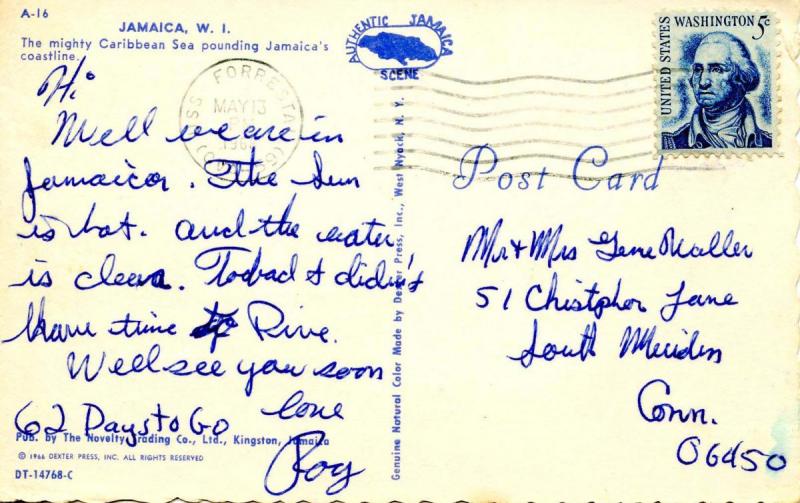 A-16
JAMAICA, W. I.
The mighty Caribbean Sea pounding Jamaica's
coastline.
AUTHENTIC JAMAICA
SCENE
USS FORRESTAL
MAY 13
UNITED STATES
WASHINGTON 5c
Hi
Well we are in
Jamaica. The Sun
is hot. and the water
is clear. Tobad I didn't
have time to
Well see you soon
love
62 Days to Go
Roy
Pub. by The Novelty Trading Co., Ltd., Kingston, Jamaica
© 1966 DEXTER PRESS, INC. ALL RIGHTS RESERVED
DT-14768-C
Genuine Natural Color Made by Dexter Press, Inc., West Nyack, N. Y.
Post Card
Mr & Mrs Gene Waller
51 Chistpher Lane
South Meriden
Conn.
06450